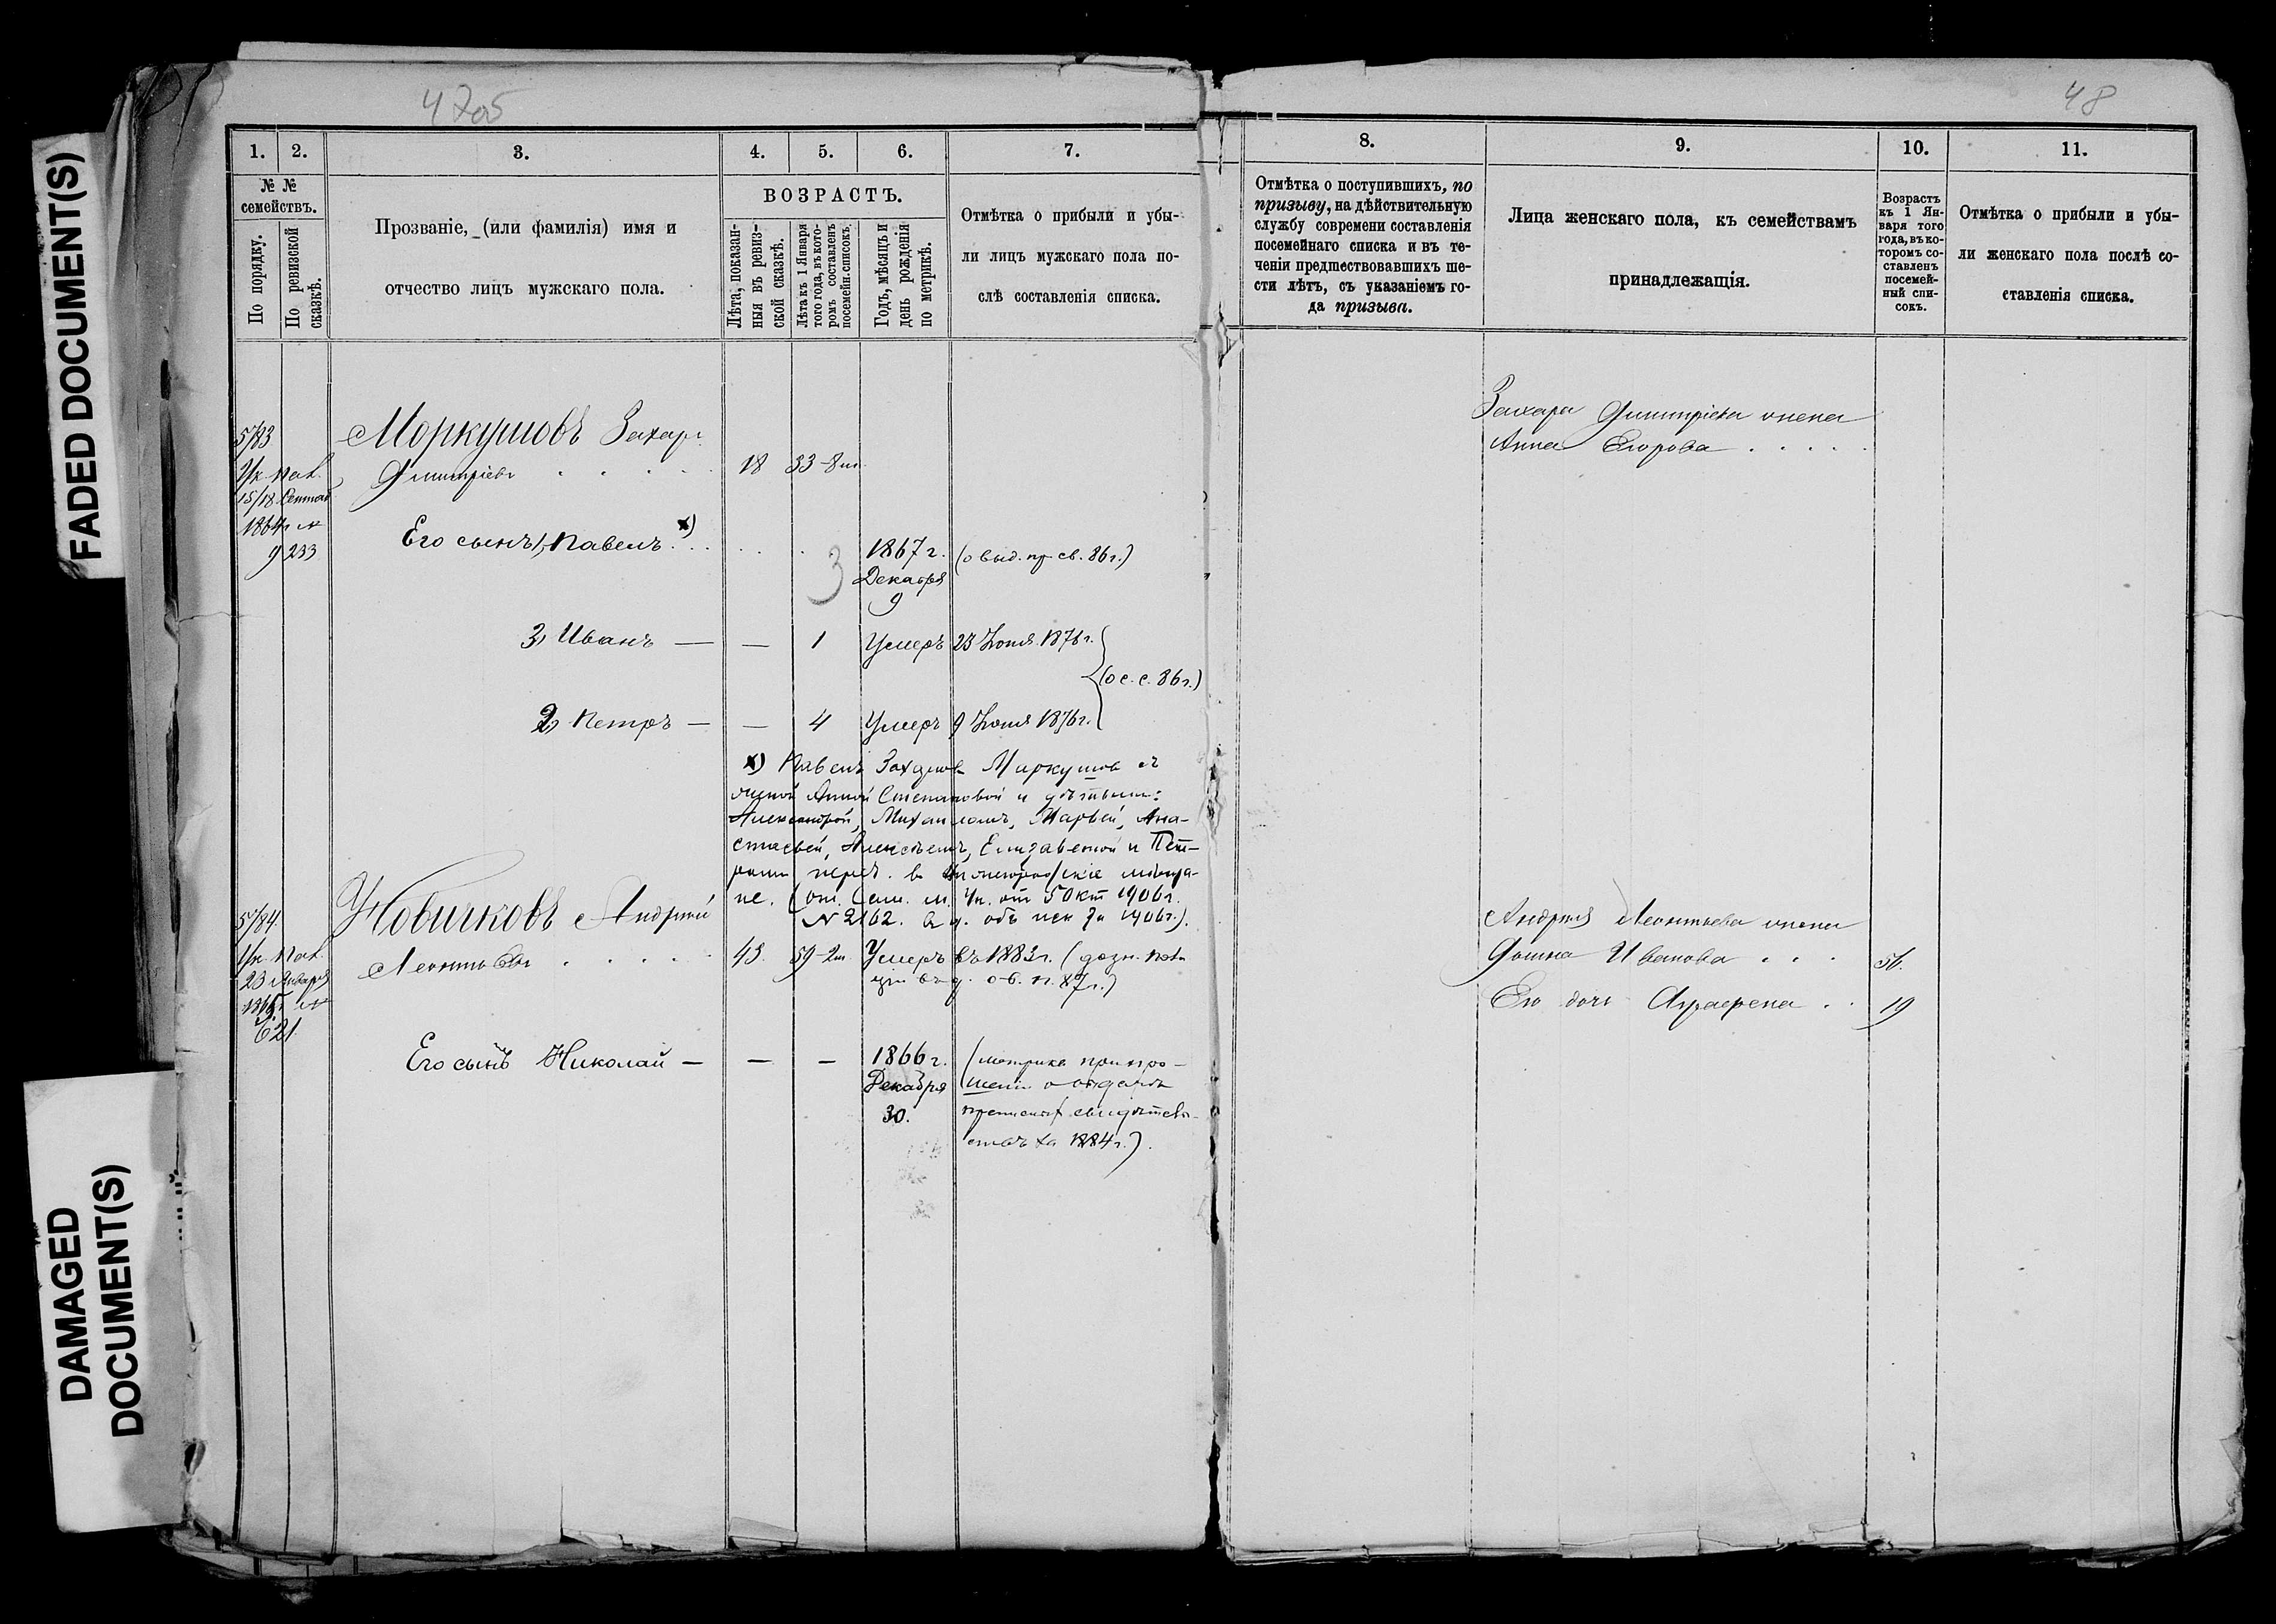 FADED DOCUMENT(S)
DAMAGED
DOCUMENT(S)
48
1.
2.
3.
4.
5.
6.
7.
№ №
семействъ.
По порядку.
По ревизской
сказкѣ.
Прозваніе, (или фамилія) имя и
отчество лицъ мужскаго пола.
ВОЗРАСТЪ.
Лѣта, показан-
ныя въ ревиз-
ской сказкѣ.
Лѣта къ 1 Января
того года, въ кото-
ромъ составленъ
посемейн. списокъ.
Годъ, мѣсяцъ и
день рожденія
по метрикѣ.
Отмѣтка о прибыли и убы-
ли лицъ мужскаго пола по-
слѣ составленія списка.
5783
Моркушовъ Захаръ
Дмитріевъ
18 33
1864 г. №
9233
Его сынъ 1, Павелъ x)
1867 г.
Декабря
9
3
3, Иванъ — — 1 Умеръ 23 Іюня 1876 г.
(о с. с. 86 г.)
2, Петръ — — 4 Умеръ 9 Іюня 1876 г.
x) Павелъ Захаровъ Маркушов съ
женой Анной Степановой и дѣтьми:
Александрой, Михаиломъ, Марьей, Ана-
стасьей, Алексѣемъ, Елизаветой и Пет-
ромъ
5784
Новичковъ Андрей
Леонтьевъ 43. 59
Умеръ въ 1883 г.
23 Января
621.
Его сынъ Николай — — —
1866 г.
Декабря
30.
(метрика при про-
шеніи о выдачѣ
1884 г.).
8.
9.
10.
11.
Отмѣтка о поступившихъ, по
призыву, на дѣйствительную
службу современи составленія
посемейнаго списка и въ те-
ченіи предшествовавшихъ ше-
сти лѣтъ, съ указаніемъ го-
да призыва.
Лица женскаго пола, къ семействамъ
принадлежащія.
Возрастъ
къ 1 Ян-
варя того
года, въ ко-
торомъ со-
ставленъ
посемей-
ный спи-
сокъ.
Отмѣтка о прибыли и убы-
ли женскаго пола послѣ со-
ставленія списка.
Захара Дмитріева жена
Анна Егорова
Андрея Леонтьева жена
Домна Иванова 56.
Его дочь Аграфена 19